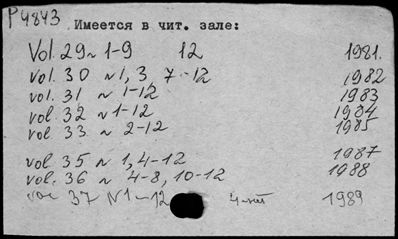 P4843
Имеется в чит. зале:
Vol. 29 N 1-9 12 1981.
vol. 30 N 1, 3 7-12 1982
vol. 31 N 1-12 1983
vol. 32 N 1-12 1984
vol. 33 N 2-12 1985
vol. 35 N 1, 4-12 1987
vol. 36 N 4-8, 10-12 1988
vol 37 N 1-12 1989